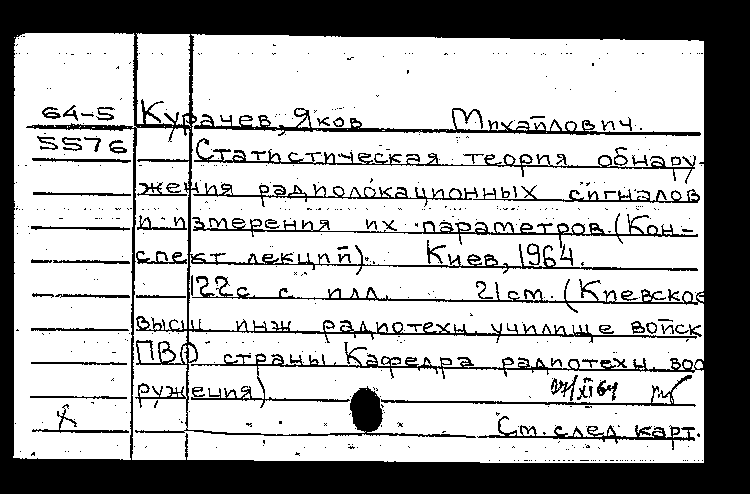 64-5 Курачев, Яков Михайлович.
5576 Статистическая теория обнару-
жения радиолокационных сигналов
и измерения их параметров. (Кон-
спект лекций). Киев, 1964.
122 с. с илл. 21 см. (Киевское
высш. инж. радиотехн. училище войск
ПВО страны. Кафедра радиотехн. воо
ружения)
XI 64
Ст. след карт.